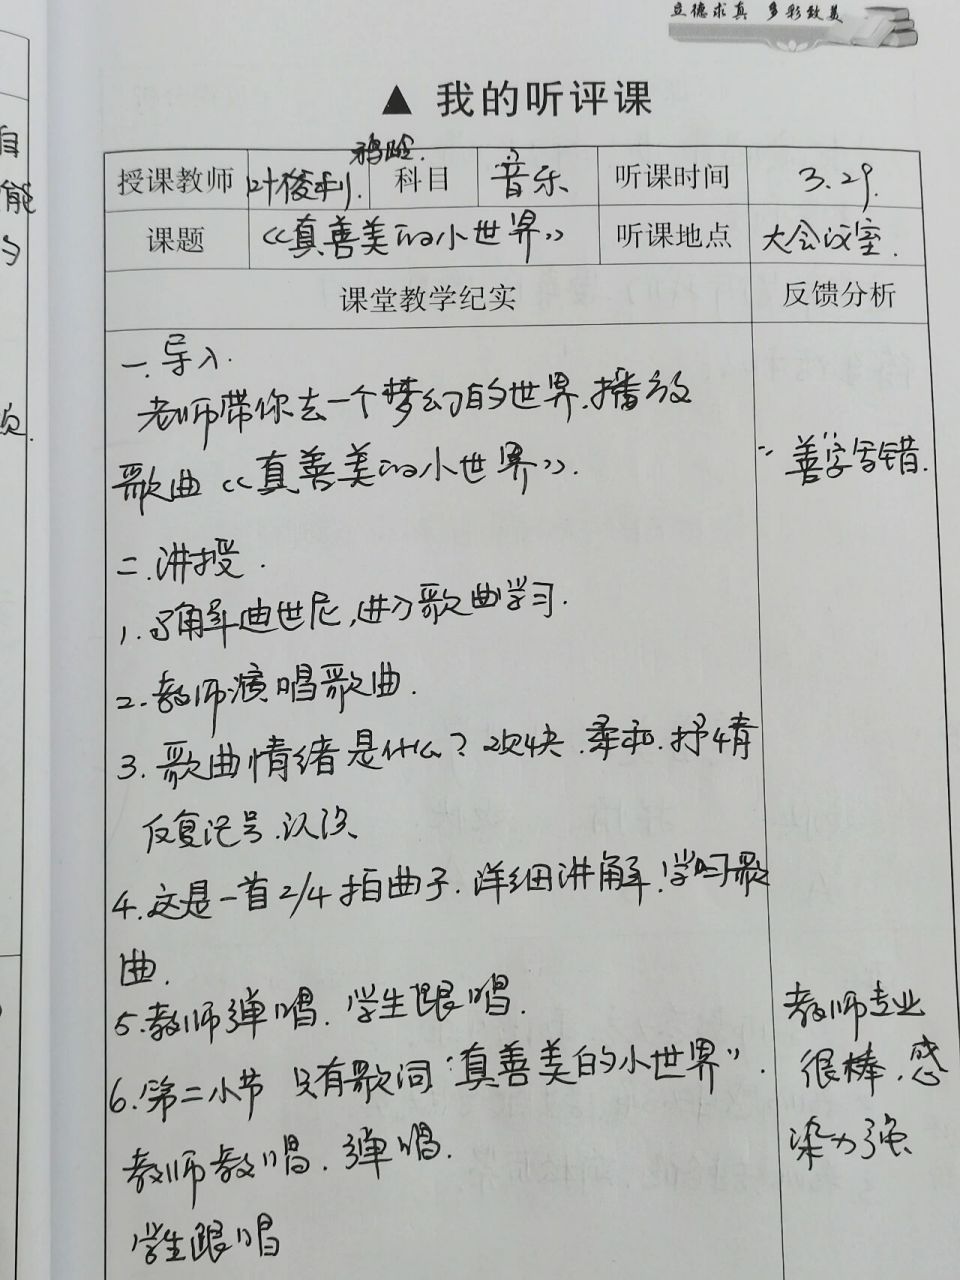 立德求真 多彩致美
▲ 我的听评课
授课教师 叶俊利 科目 音乐 听课时间 3.29.
课题 《真善美的小世界》 听课地点 大会议室.
课堂教学纪实 反馈分析
一.导入.
老师带你去一个梦幻的世界.播放
歌曲《真善美的小世界》.
善字写错.
二.讲授.
1.了解迪世尼,进入歌曲学习.
2.教师演唱歌曲.
3.歌曲情绪是什么?欢快.柔和.抒情
反复记号.认识
4.这是一首2/4拍曲子.详细讲解.学唱歌
曲.
5.教师弹唱.学生跟唱.
6.第二小节 只有歌词"真善美的小世界".
教师教唱.弹唱.
学生跟唱
教师专业
很棒.感
染力强
自
能
的